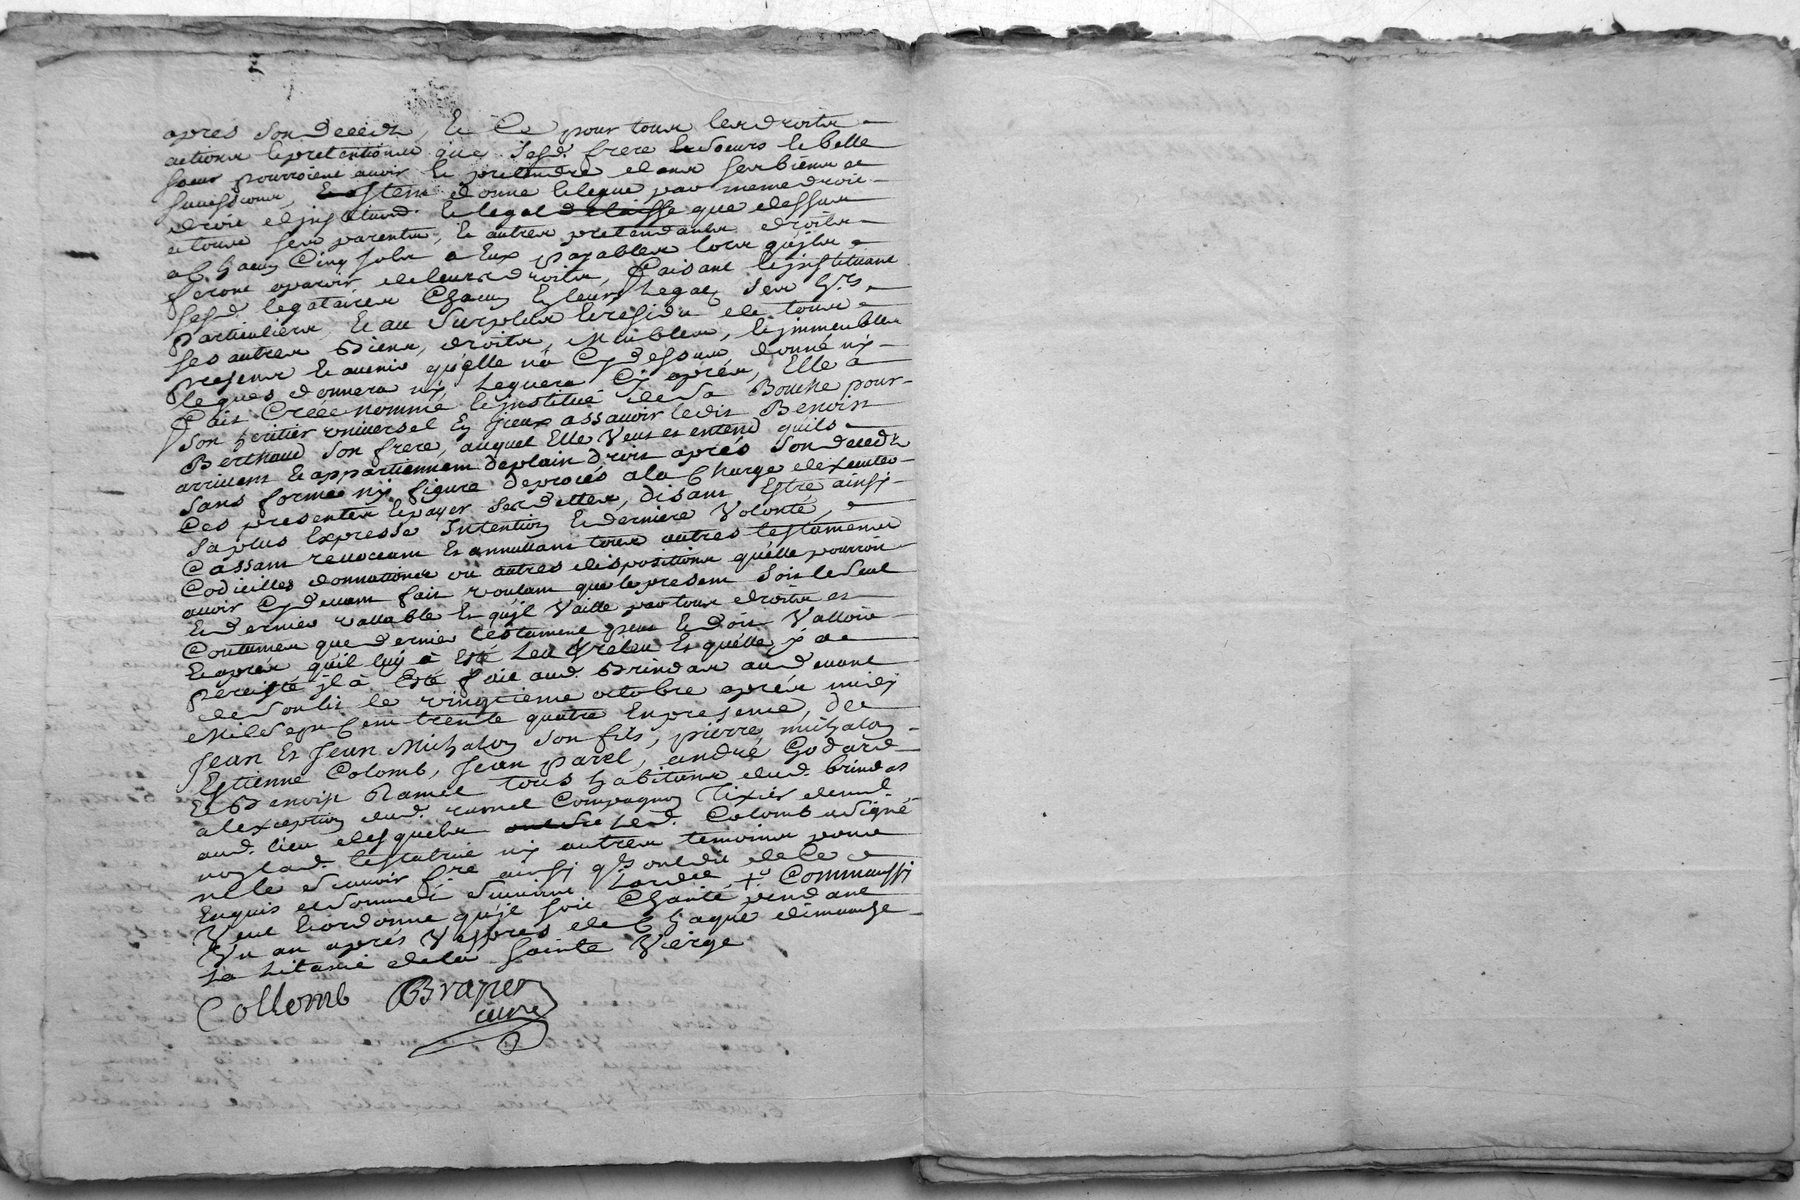 apres son deceds, Et Ce pour tous les droits
actions et pretentions que sesd. frere et soeurs et belle
soeur pourroient avoir et pretendre dans ses biens et
succession, Item donne et legue par meme droit
droit d'institution et legat delaisse que dessus
a tous ses parents, et autres pretendants droits
a Chacun Cinq sols a Eux payables lors qu'ils
feront aparoir de leurs droits, faisant et instituant
sesd. legataires Chacun En leurs Legats ses hrs
Particuliers, Et au Surplus et residu de tous
ses autres Biens, droits, Meubles, et immeubles
presents et avenir qu'elle n'a Cy dessus, donné ny
legués donnera ny Leguera Cy après, Elle à
fait Créée nommé et institué de sa Bouche pour
son heritier universel En Iceux assavoir ledit Benoist
Berthaud son frere, auquel Elle Veut et entend quils
arrivent et appartiennent de plain droit après son deceds
sans forme ny figure de procés a la Charge d'executer
Ces presentes et payer ses dettes, disant Estre ainsi
sa plus Expresse Intention et derniere Volonté,
Cassant revocant et annullant tous autres testaments
Codicilles donnations ou autres dispositions qu'elle pourroit
avoir Cy devant fait voulant que le present soit le seul
et dernier vallable et qu'il Vaille par tous droits et
Coutumes que dernier testament peut et doit Valloir
et après qu'il luy à Esté Leu et releu et qu'elle y a
persisté il à Esté fait aud. Brindas au devant
le vingtieme octobre après midy
Mil sept Cent trente quatre En presence, de
Jean Et Jean Michalon son fils, pierre michalon
Estienne Colomb, Jean parel, andré Godard
Et Benoist Ramel tous habitans dud. brindas
a lexception dud. ramel Compagnon Tixier demt.
aud. lieu desquels Led. Colomb a signé
non lad. testatrice ny autres temoins pour
ne le sçavoir fre ainsi qls ont dit de Ce
Enquis et sommés suivant Lordce + Comm aussi
Veut et ordonne qu'il soit Chanté pendant
Un an après Vespres de Chaque dimanche
La Litanie de la Sainte Vierge
Collomb Brayer
curé